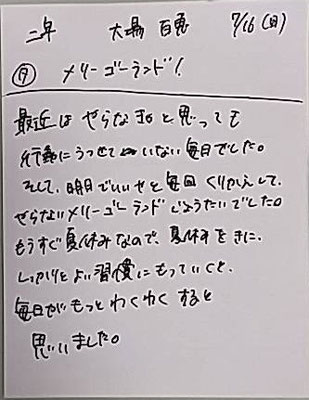 二年 大場 百恵 7/16(日)
㊊ メリーゴーランド!
最近は やらなきゃと思っても
行動にうつせていない毎日でした。
そして、明日でいいやと毎回くりかえして、
やらないメリーゴーランドじょうたいでした。
もうすぐ夏休みなので、夏休みをきに、
しっかりとよい習慣にもっていくと、
毎日がもっとわくわくすると
思いました。